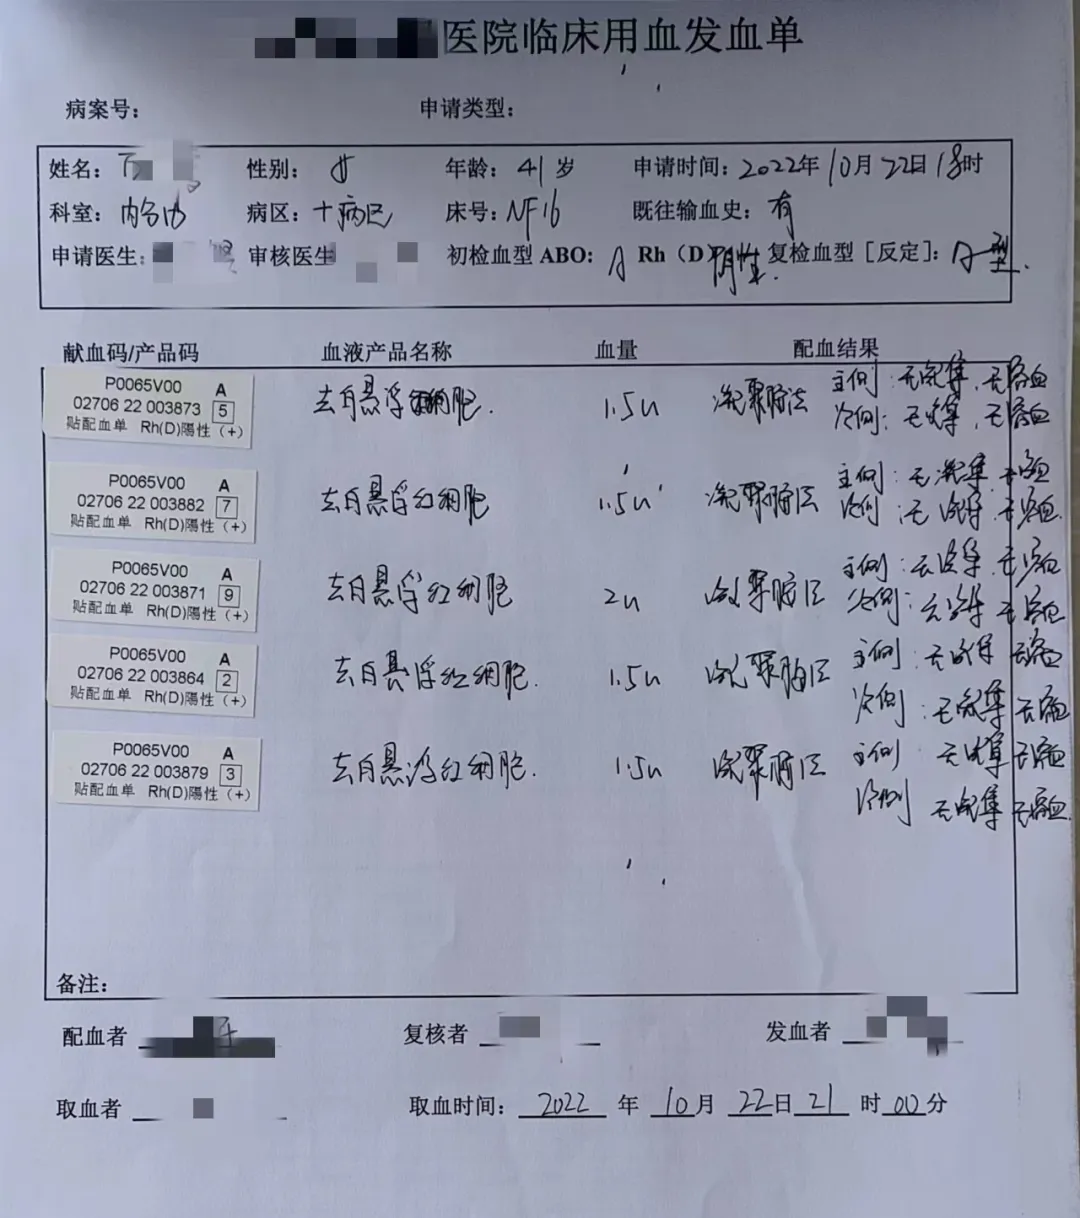 医院临床用血发血单
病案号： 申请类型：
姓名： 性别：女 年龄：41岁 申请时间：2022年10月22日18时
科室： 病区：十病区 床号：NF16 既往输血史：有
申请医生： 审核医生 初检血型 ABO：A Rh（D）阴性. 复检血型［反定］：A型.
献血码/产品码 血液产品名称 血量 配血结果
P0065V00 A
02706 22 003873 5 去白悬浮红细胞. 1.5u 凝聚胺法 主侧：无凝集，无溶血
贴配血单 Rh(D)陽性 (+) 次侧：无凝集，无溶血
P0065V00 A
02706 22 003882 7 去白悬浮红细胞 1.5u 凝聚胺法 主侧：无凝集.无溶血
贴配血单 Rh(D)陽性 (+) 次侧：无凝集.无溶血.
P0065V00 A
02706 22 003871 9 去白悬浮红细胞 2u 凝聚胺法 主侧：无凝集.无溶血
贴配血单 Rh(D)陽性 (+) 次侧：无凝集 无溶血
P0065V00 A
02706 22 003864 2 去白悬浮红细胞. 1.5u 凝聚胺法 主侧：无凝集 无溶血
贴配血单 Rh(D)陽性 (+) 次侧：无凝集 无溶血
P0065V00 A
02706 22 003879 3 去白悬浮红细胞. 1.5u 凝聚胺法 主侧：无凝集 无溶血
贴配血单 Rh(D)陽性 (+) 次侧 无凝集 无溶血.
备注：
配血者 复核者 发血者
取血者 取血时间：2022年10月22日21时00分